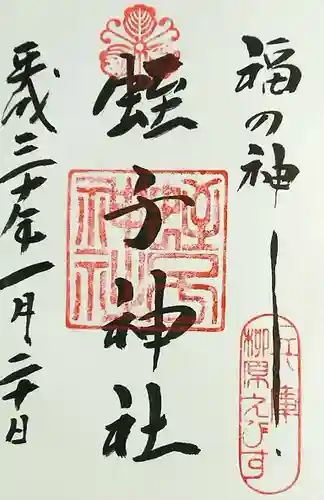 福の神
兵庫
柳原えびす
蛭子神社
蛭子神社
平成三十年一月二十日